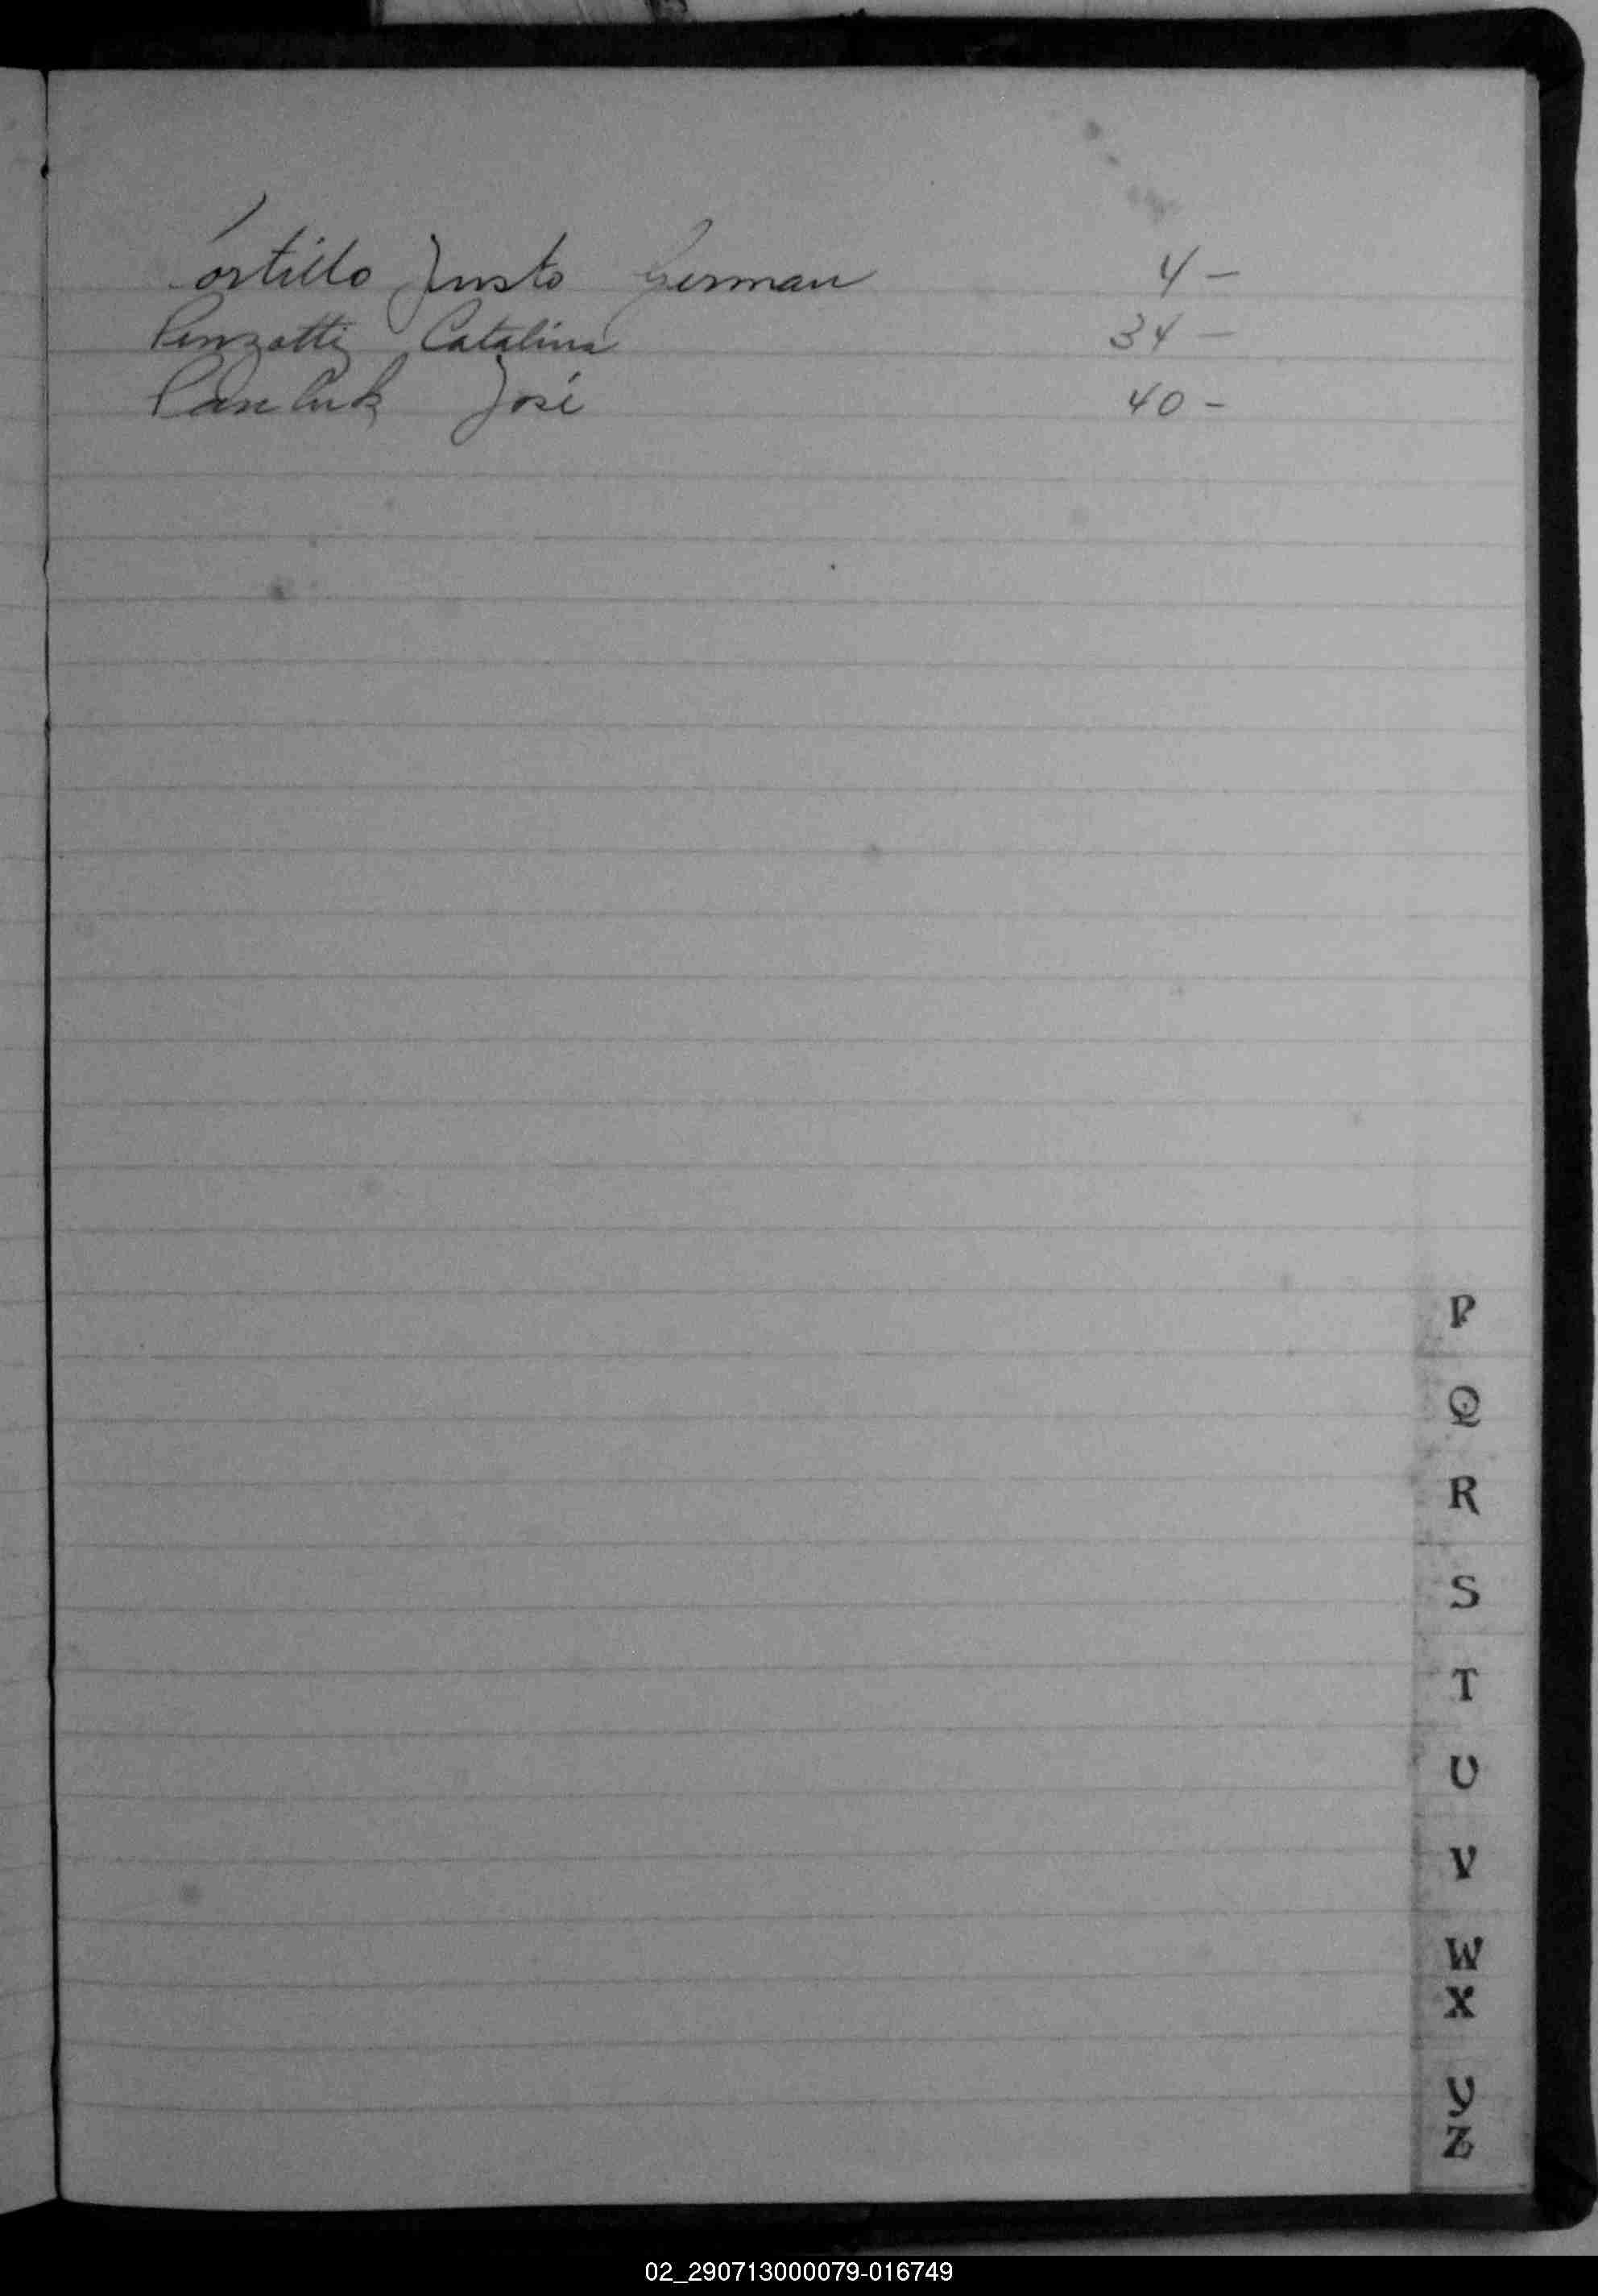 Portillo Justo German 4 -
Penzotti Catalina 34 -
José 40 -
P
Q
R
S
T
U
V
W
X
Y
Z
02_290713000079-016749